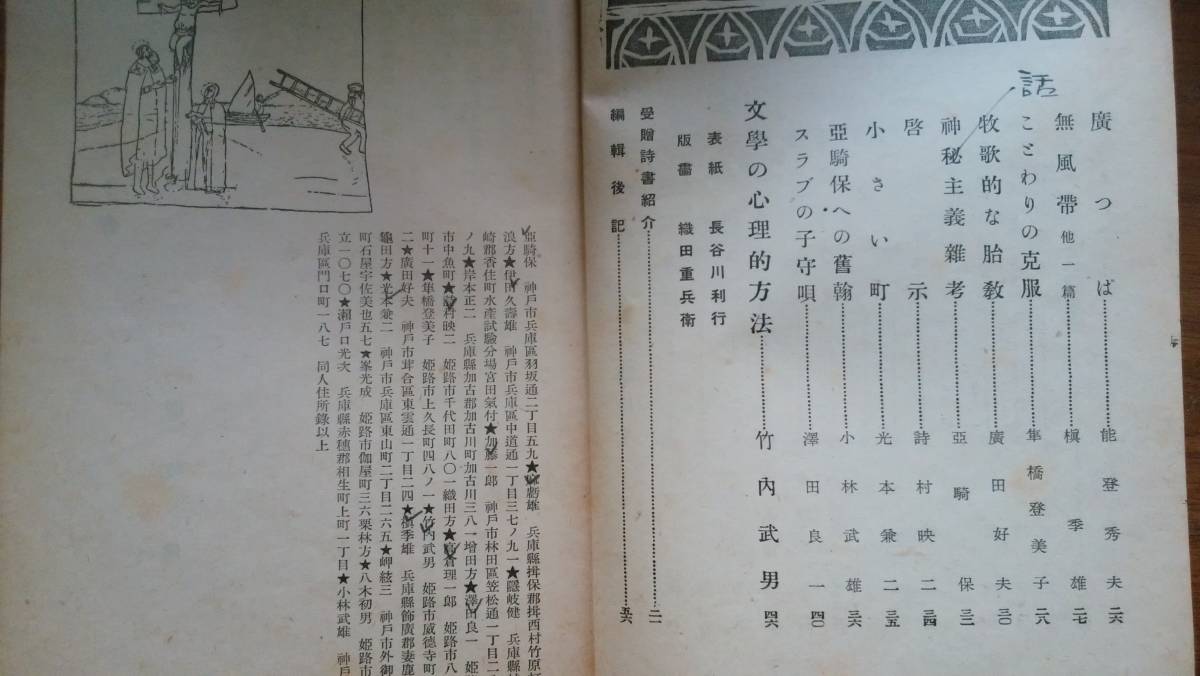 話
廣つば 能登秀夫 二六
無風帶 他一篇 槇季雄 二七
ことわりの克服 隼橋登美子 二八
牧歌的な胎教 廣田好夫 三〇
神秘主義雜考 亞騎保 三二
啓示 詩村映二 三四
小さい町 光本兼二 三五
亞騎保への舊翰 小林武雄 三六
スラブの子守唄 澤田良一 四〇
文學の心理的方法 竹內武男 四六
表紙 長谷川利行
版畵 織田重兵衛
受贈詩書紹介 二一
編輯後記 五六
亞騎保 神戶市兵庫區羽坂通二丁目五九★ 雄 兵庫縣揖保郡揖西村竹原
浪方★伊田久壽雄 神戶市兵庫區中道通一丁目三七ノ九一★隱岐健 兵庫縣
崎郡香住町水產試驗分場宮田氣付★加藤一郞 神戶市林田區笠松通一丁目二
ノ九★岸本正二 兵庫縣加古郡加古川町加古川三八一增田方★澤田良一 姬
市中魚町★詩村映二 姬路市千代田町八〇一織田方★高倉理一郞 姬路市八
町十一★隼橋登美子 姬路市上久長町四八ノ一★竹內武男 姬路市威德寺町
二★廣田好夫 神戶市葺合區東雲通一丁目二四★槇季雄 兵庫縣飾廣郡妻鹿
龜田方★光本兼二 神戶市兵庫區東山町二丁目二六五★岬絃三 神戶市外御
町石屋宇佐美也五七★峯光成 姬路市伽屋町三六栗林方★八木初男 姬路市
立一〇七〇★瀨戶口光次 兵庫縣赤穗郡相生町上町一丁目★小林武雄 神戶
兵庫區門口町一八七 同人住所錄以上